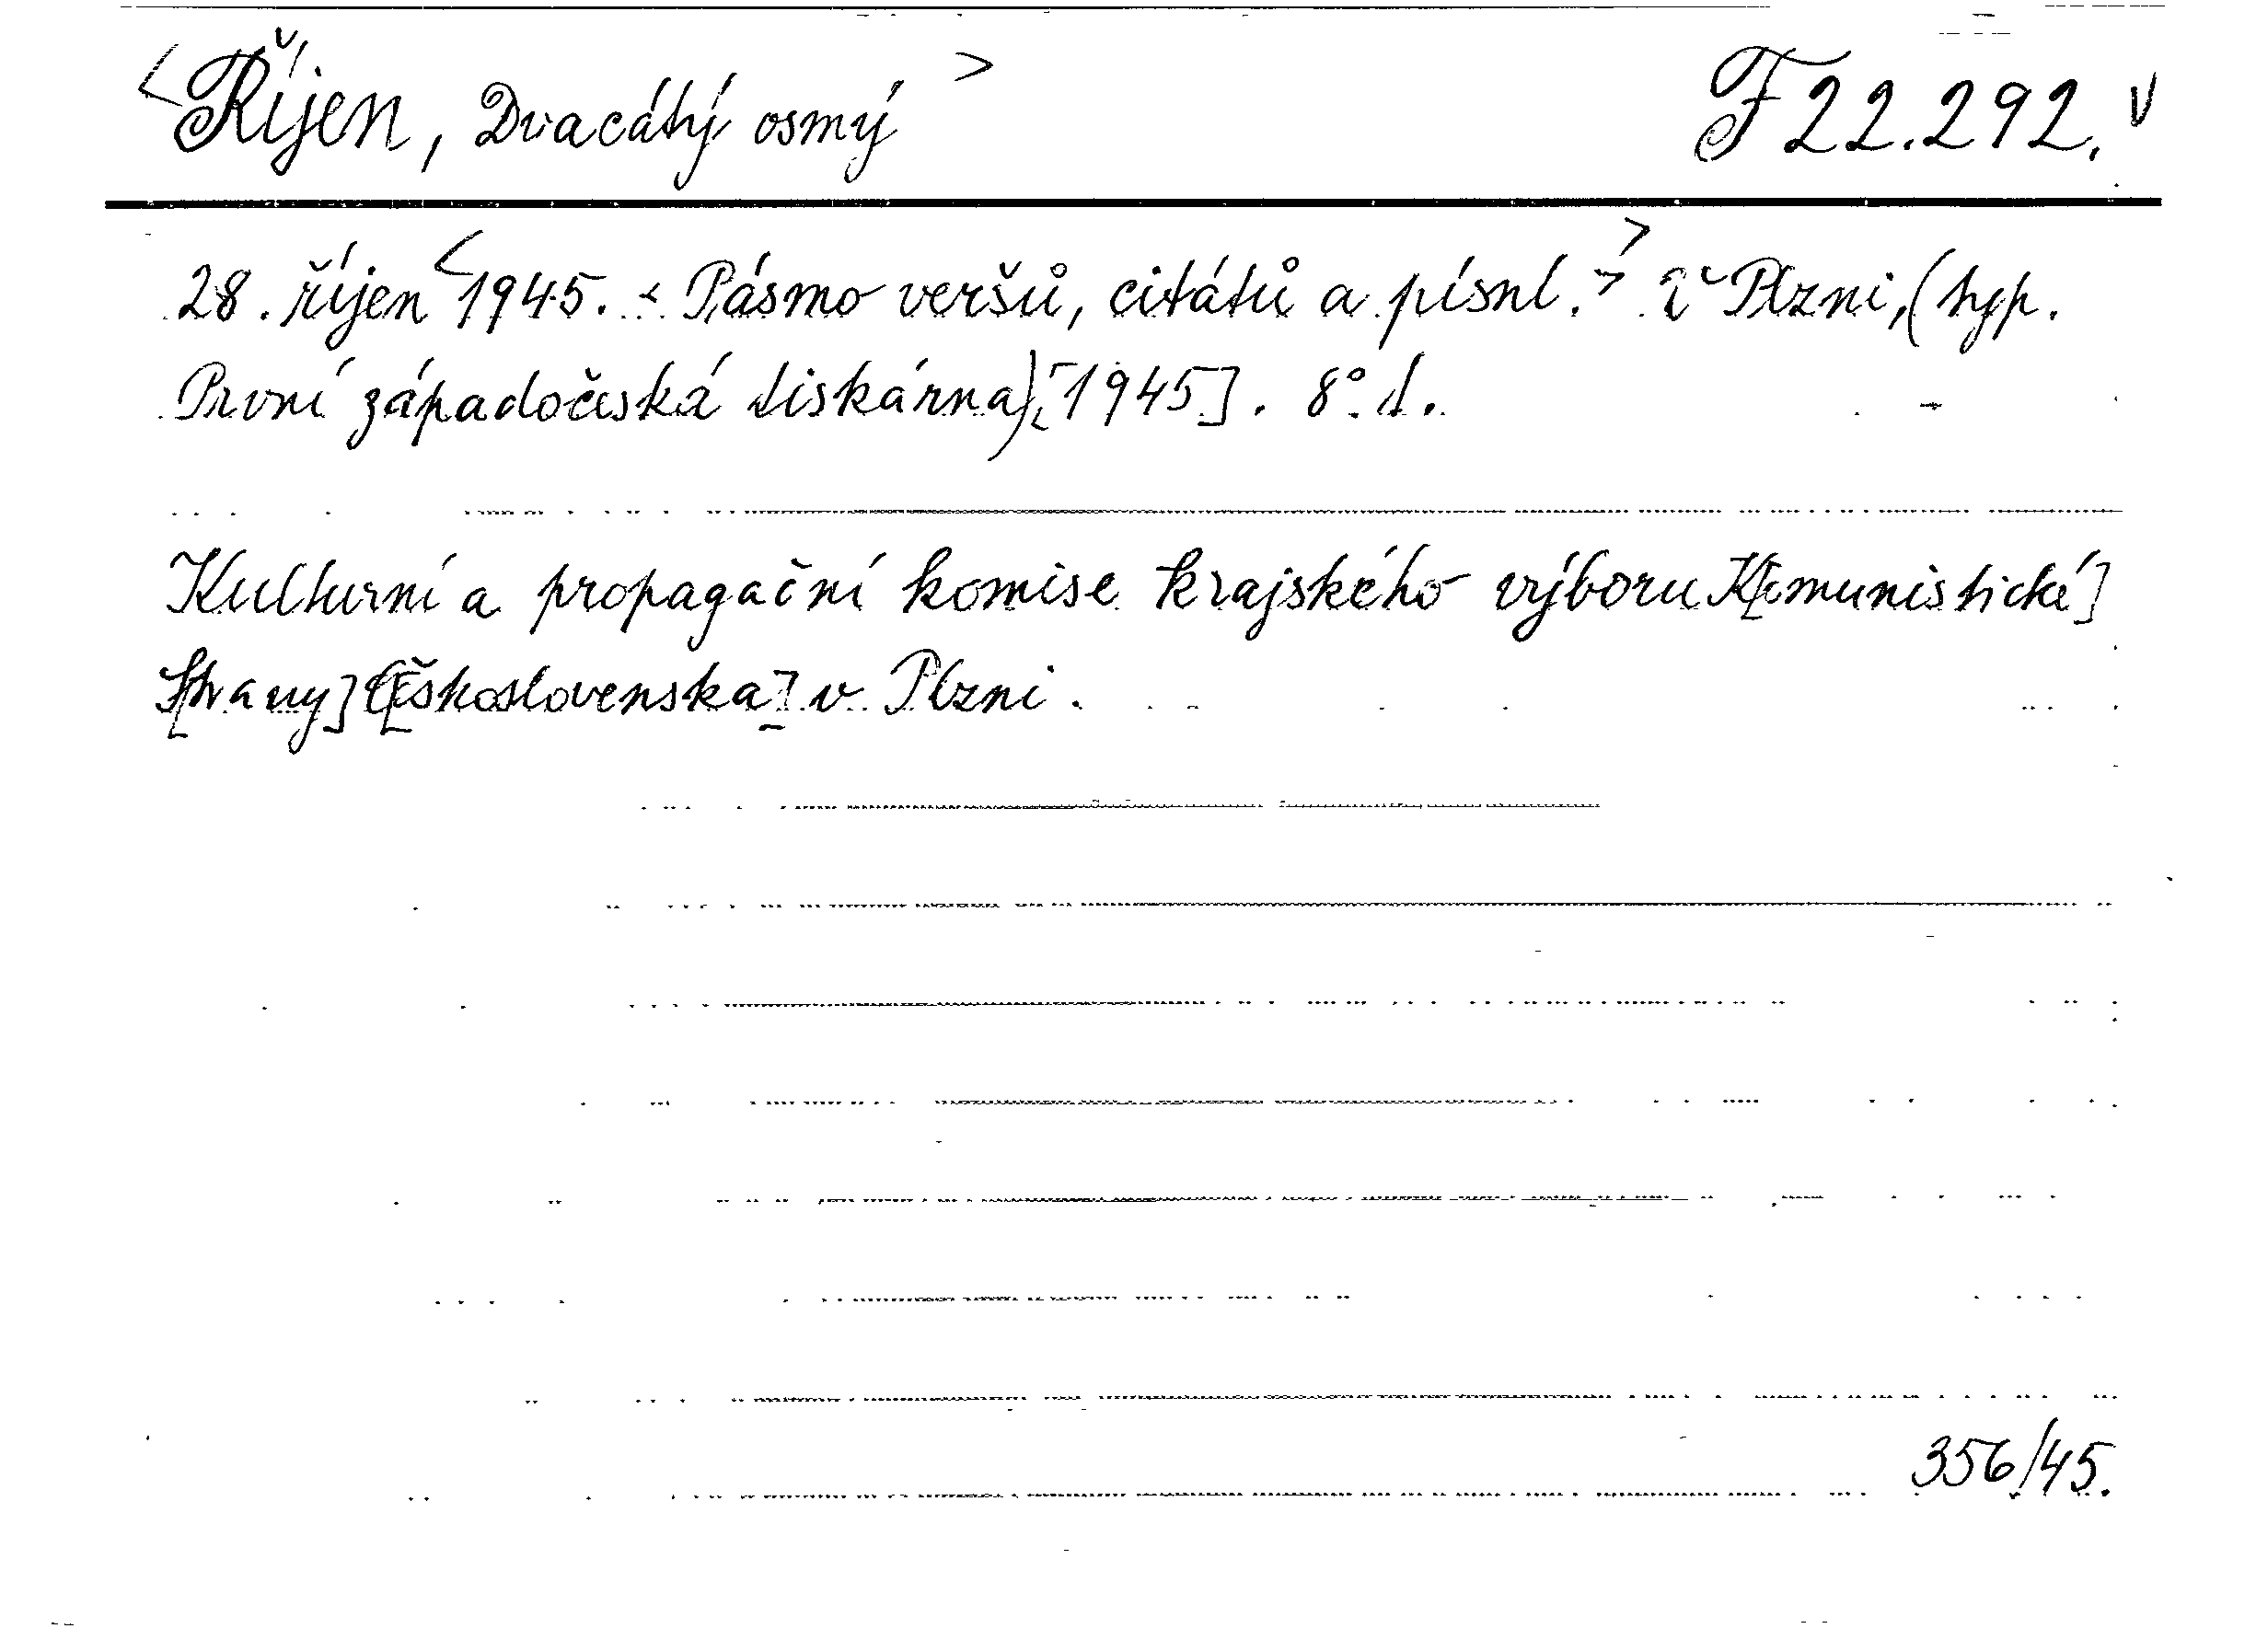 <Říjen, Dvacátý osmý> F 22.292. v
28. říjen <1945. < Pásmo veršů, citátů a písní.>> V Plzni, (typ.
První západočeská tiskárna) [1945]. 8°. d.
Kulturní a propagační komise krajského výboru K[omunistické]
S[trany] Č[eskoslovenska] v Plzni.
356/45.